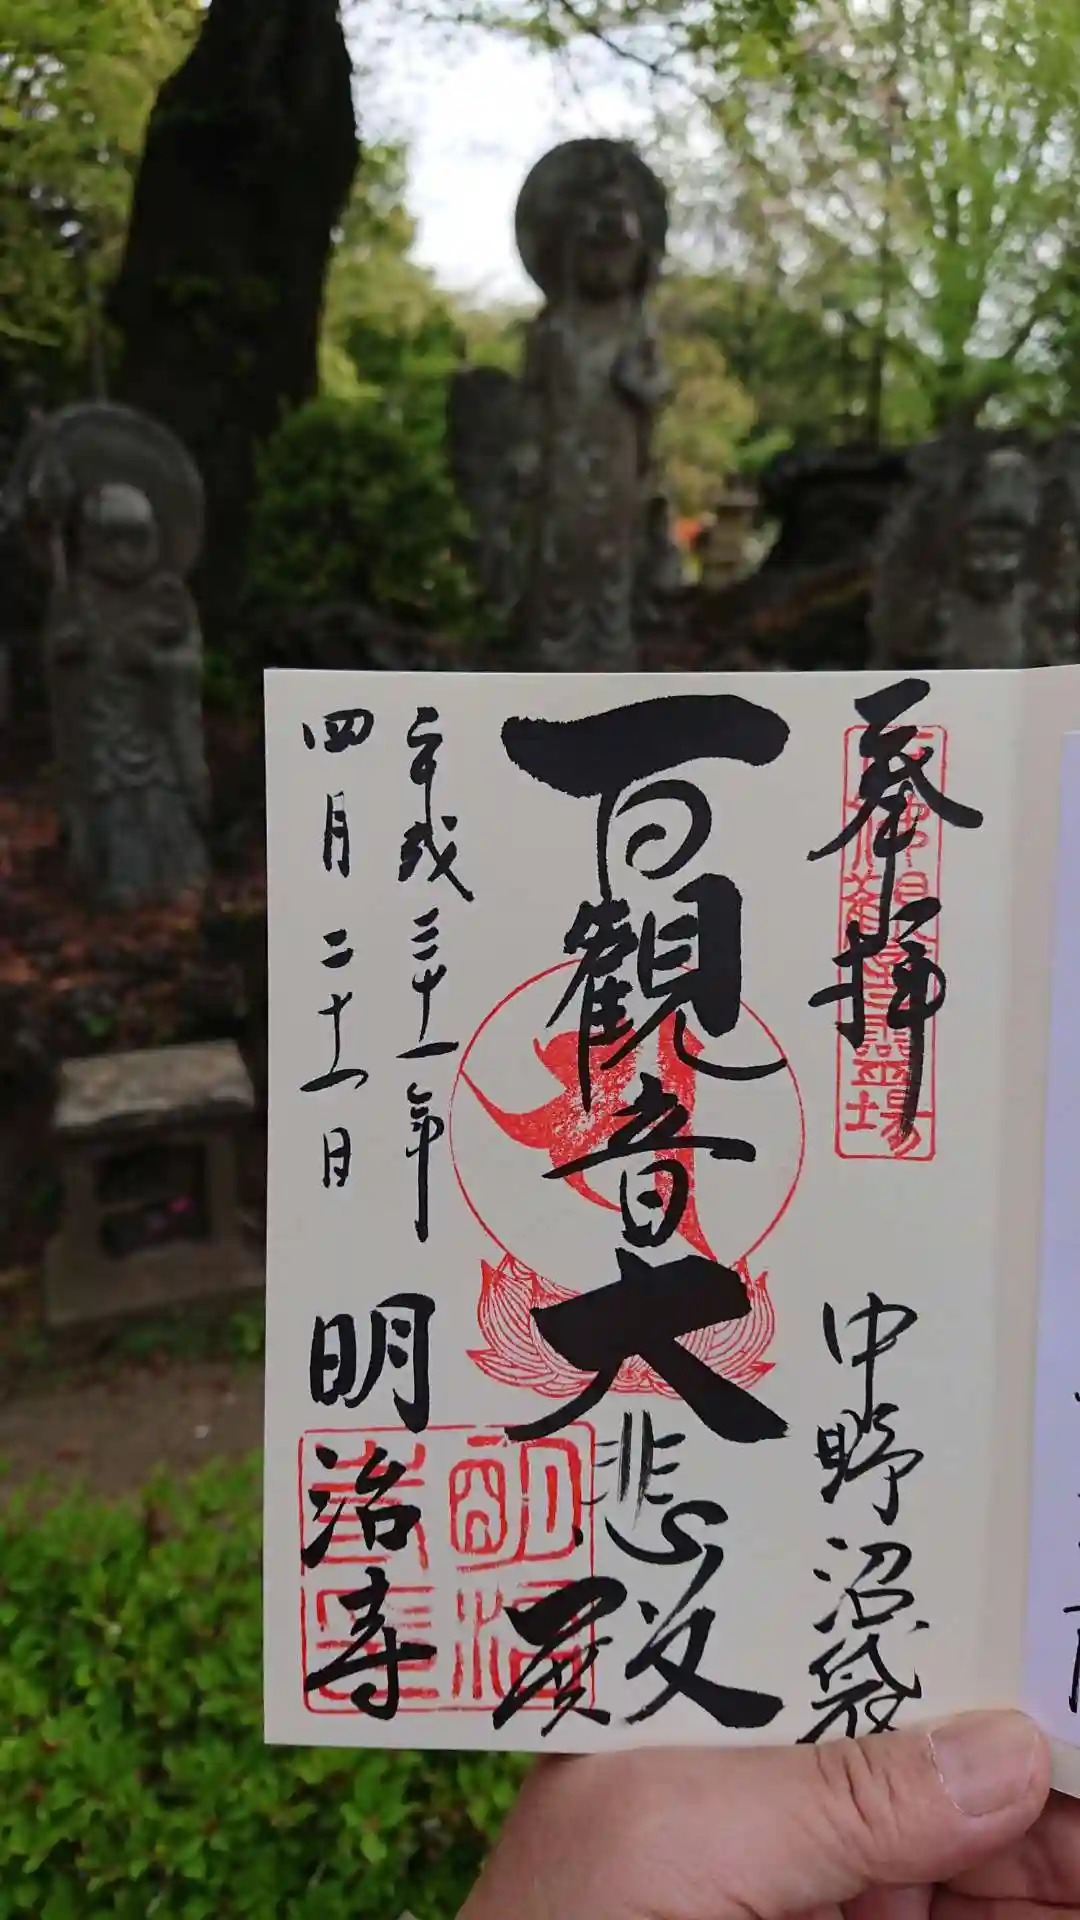 奉拝
中野沼袋
百觀音大悲殿
平成三十一年
四月二十一日
明治寺